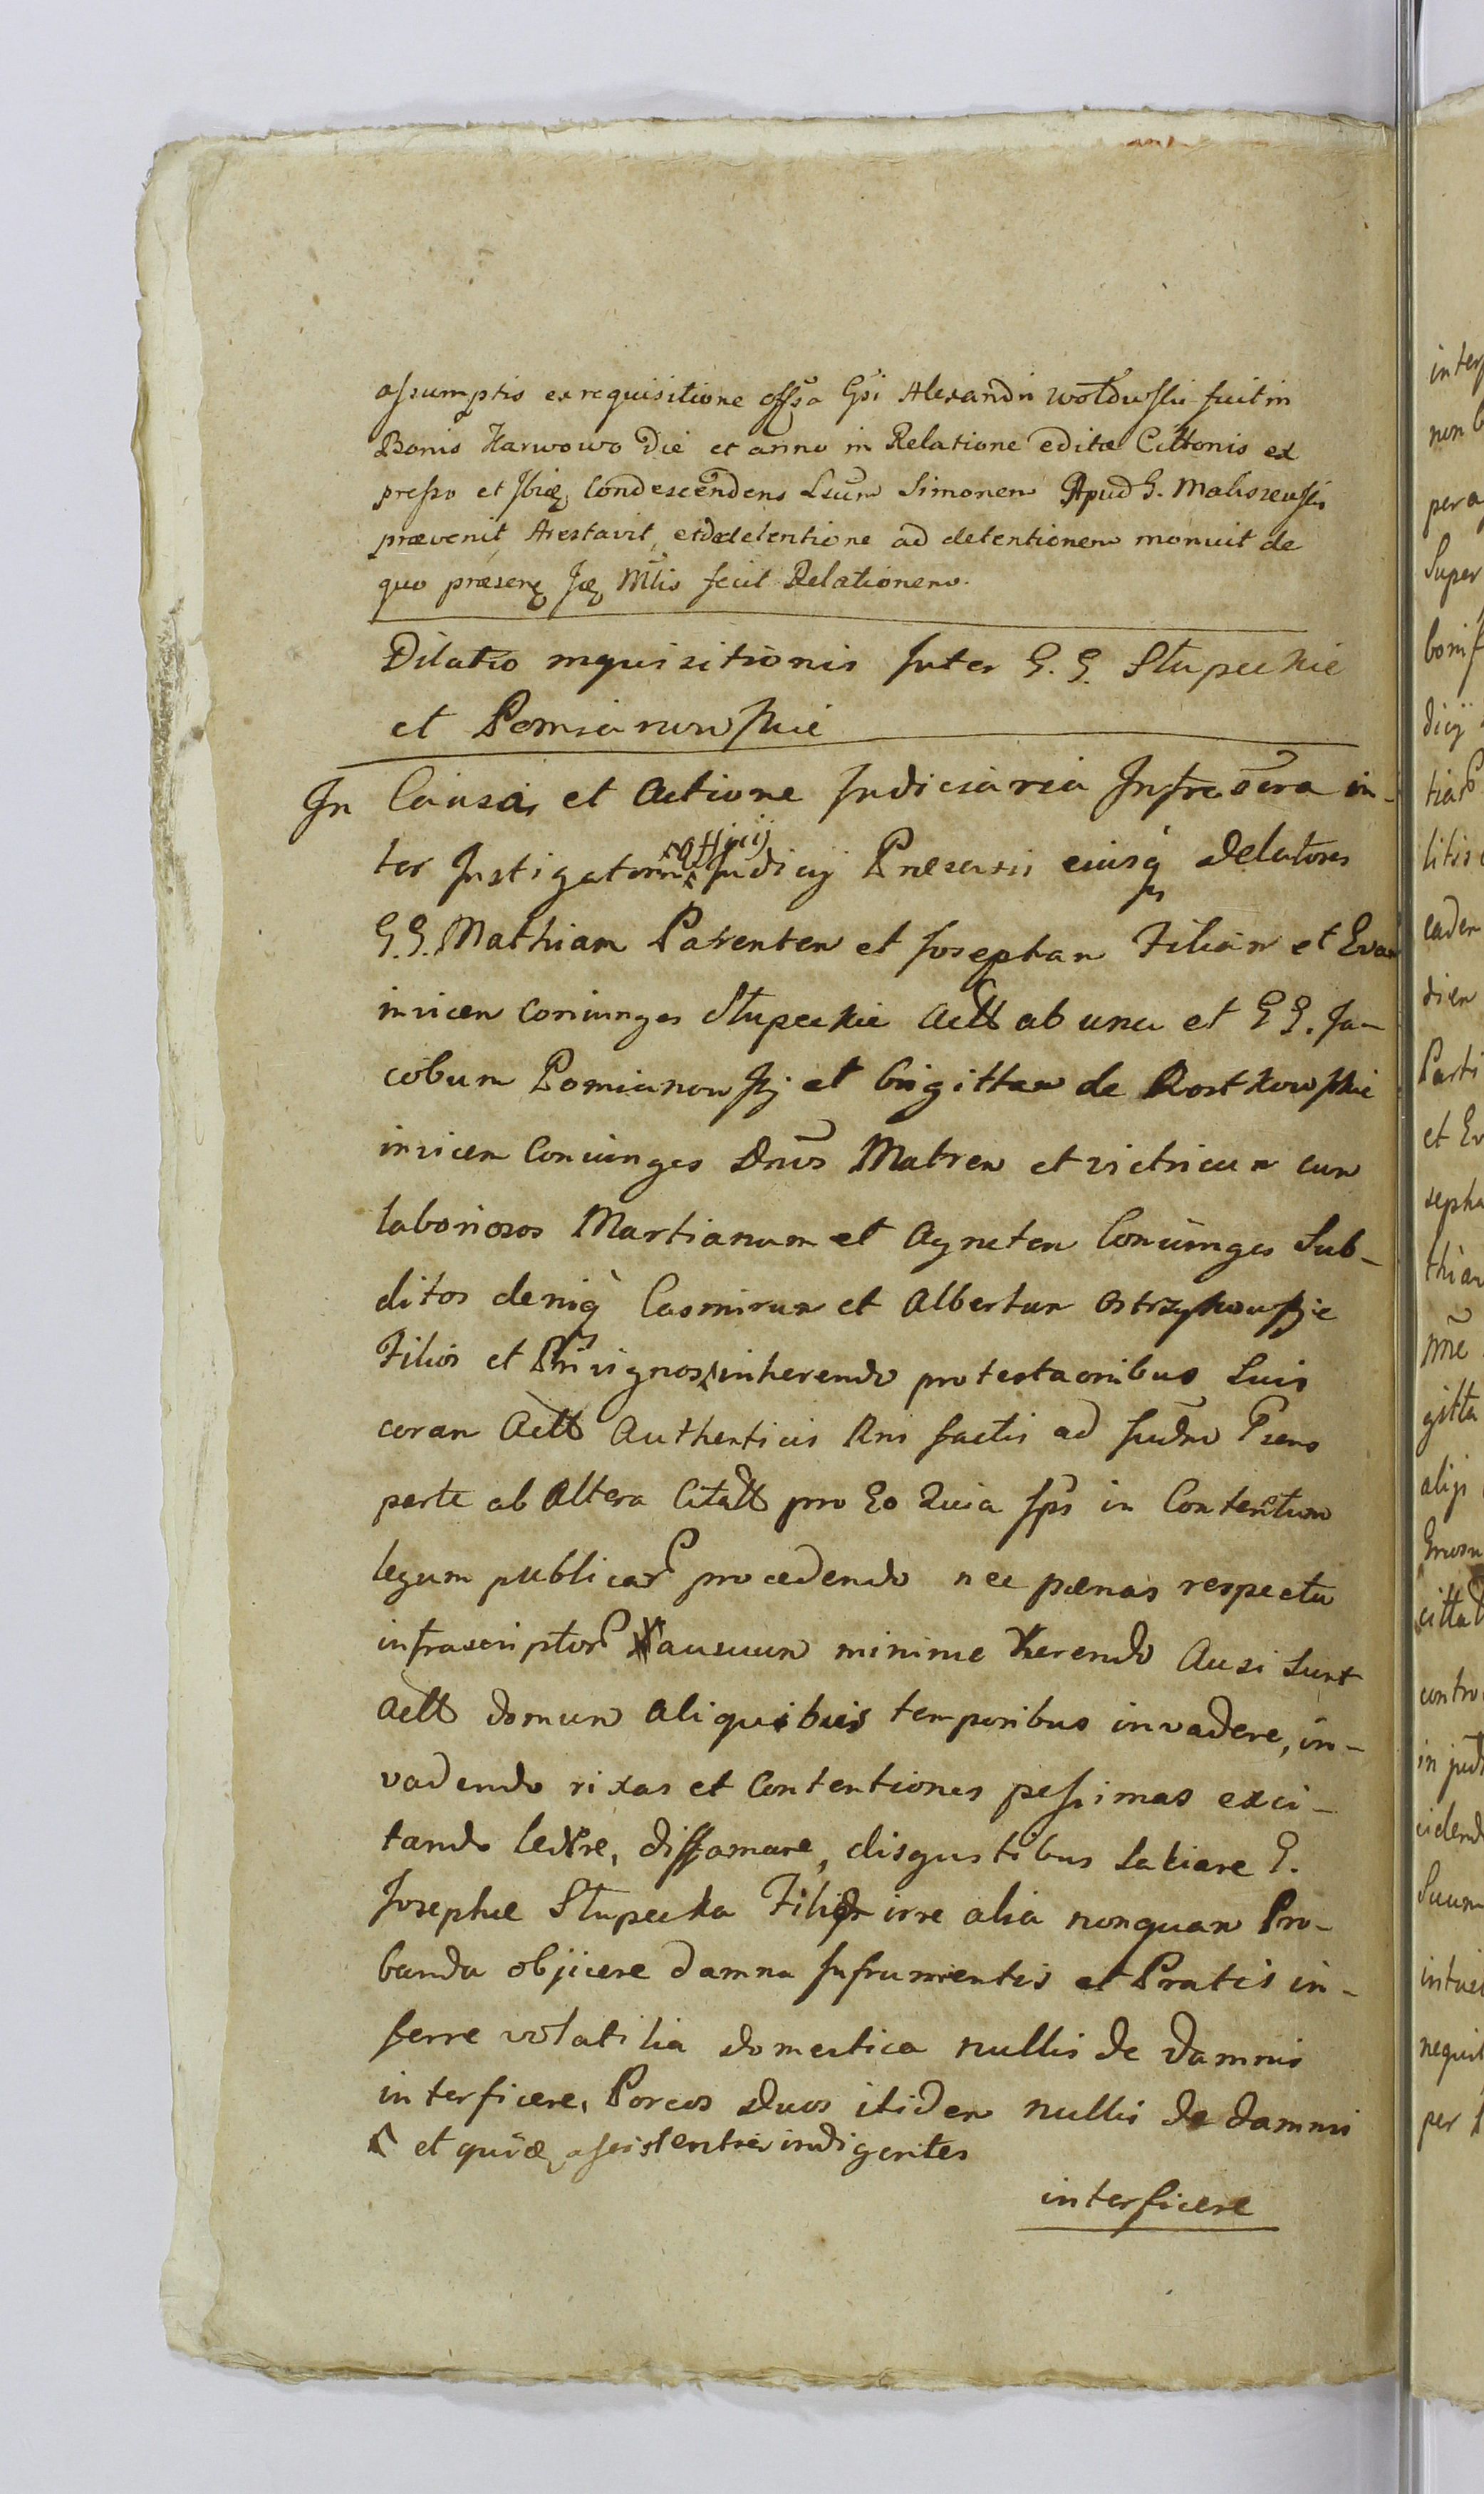 assumptis ex requisitione offsa Gsi Alexandri Wołdwski fuit in
Bonis Karwowo Die et anno in Relatione editæ Cittonis ex
presso et Ibiq condescendens Lsum Simonem Apud G. Maliszewski
prævenit Arestavit, et de detentione ad detentionem monuit de
quo præsenq Jq Mtis fecit Relationem.
Dilatio inquisitionis Inter G. G. Słupeckie
et Pomianowskie
In Causa et Actione Judiciaria Infrascra in-
ter Instigatorem officij Judicij Præsentis eiusq delatores
G.G. Mathiam Parentem et Josepham Filiam et Evam
invicem coniunges Słupeckie Actt ab una et G G. Ja-
cobum Pomianowskj et Brigittam de Rostkowskie
invicem Coniunges Dnos Matrem et victricum cum
laboriosos Martianum et Agnetem Coniunges Sub-
ditos deniq Casmirum et Albertum Ostrzykowskie
Filios et Privignos inherendo protestaonibus Suis
coram Actt Authenticis Rni factis ad Judm Præns
parte ab Altera Citatt pro Eo Quia Ipsi in Contentum
legum publicar procedendo nec pænas respectu
infrascriptor ausuum minime verendo Ausi Sunt
Actt domum aliquibus temporibus invadere, in-
vadendo rixas et Contentiones pessimas exci-
tando ledere, diffamare, disgustibus Satiare G.
Josephæ Słupecka Filiæ irre alia nonquam Pro-
banda objicere damna Infrumentis et Pratis in-
ferre volatilia domestica nullis de damnis
interficere, Porcos duos itidem nullis de damnis
et quiq assistentia indigentes
interficere
inter
non
per a
Super
boni
dicij
tiar
litis
eadem
diem
Parti
et Ev
sepha
thiam
gitta
alijs
citta
contro
in jud
cidend
Suum
nequit
per